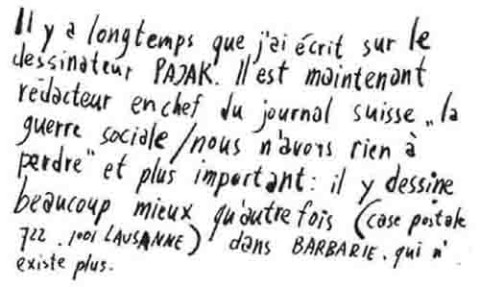 Il y a longtemps que j'ai écrit sur le
dessinateur PAJAK. Il est maintenant
rédacteur en chef du journal suisse „la
guerre sociale/nous n'avons rien à
perdre" et plus important: il y dessine
beaucoup mieux qu'autre fois (case postale
722. 1001 LAUSANNE) dans BARBARIE. qui n'
existe plus.